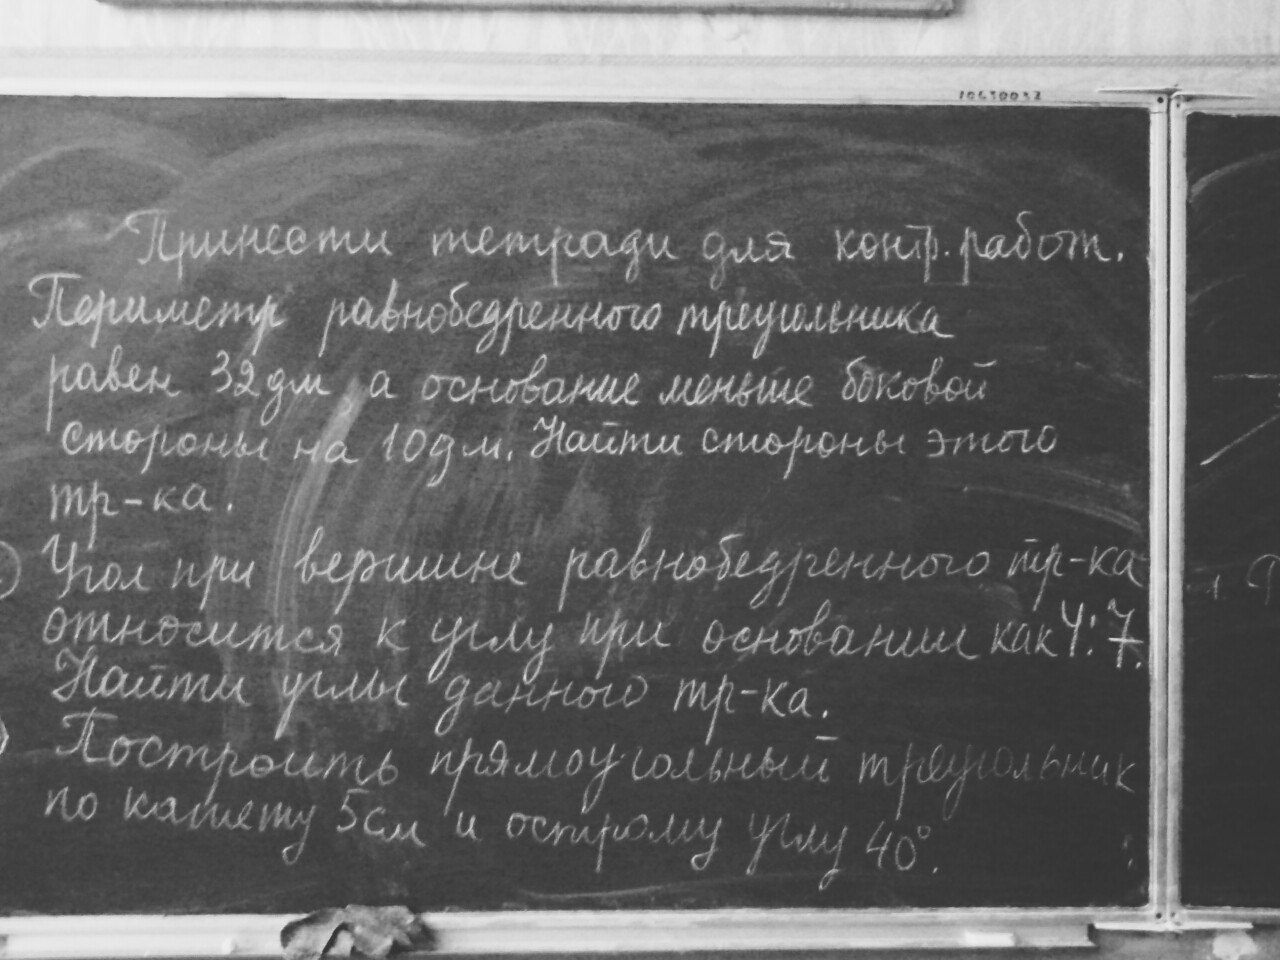 10630037
Принести тетради для контр. работ.
Периметр равнобедренного треугольника
равен 32 дм а основание меньше боковой
стороны на 10 дм. Найти стороны этого
тр-ка.
) Угол при вершине равнобедренного тр-ка
относится к углу при основании как 4:7.
Найти углы данного тр-ка.
) Построить прямоугольный треугольник
по катету 5см и острому углу 40°.